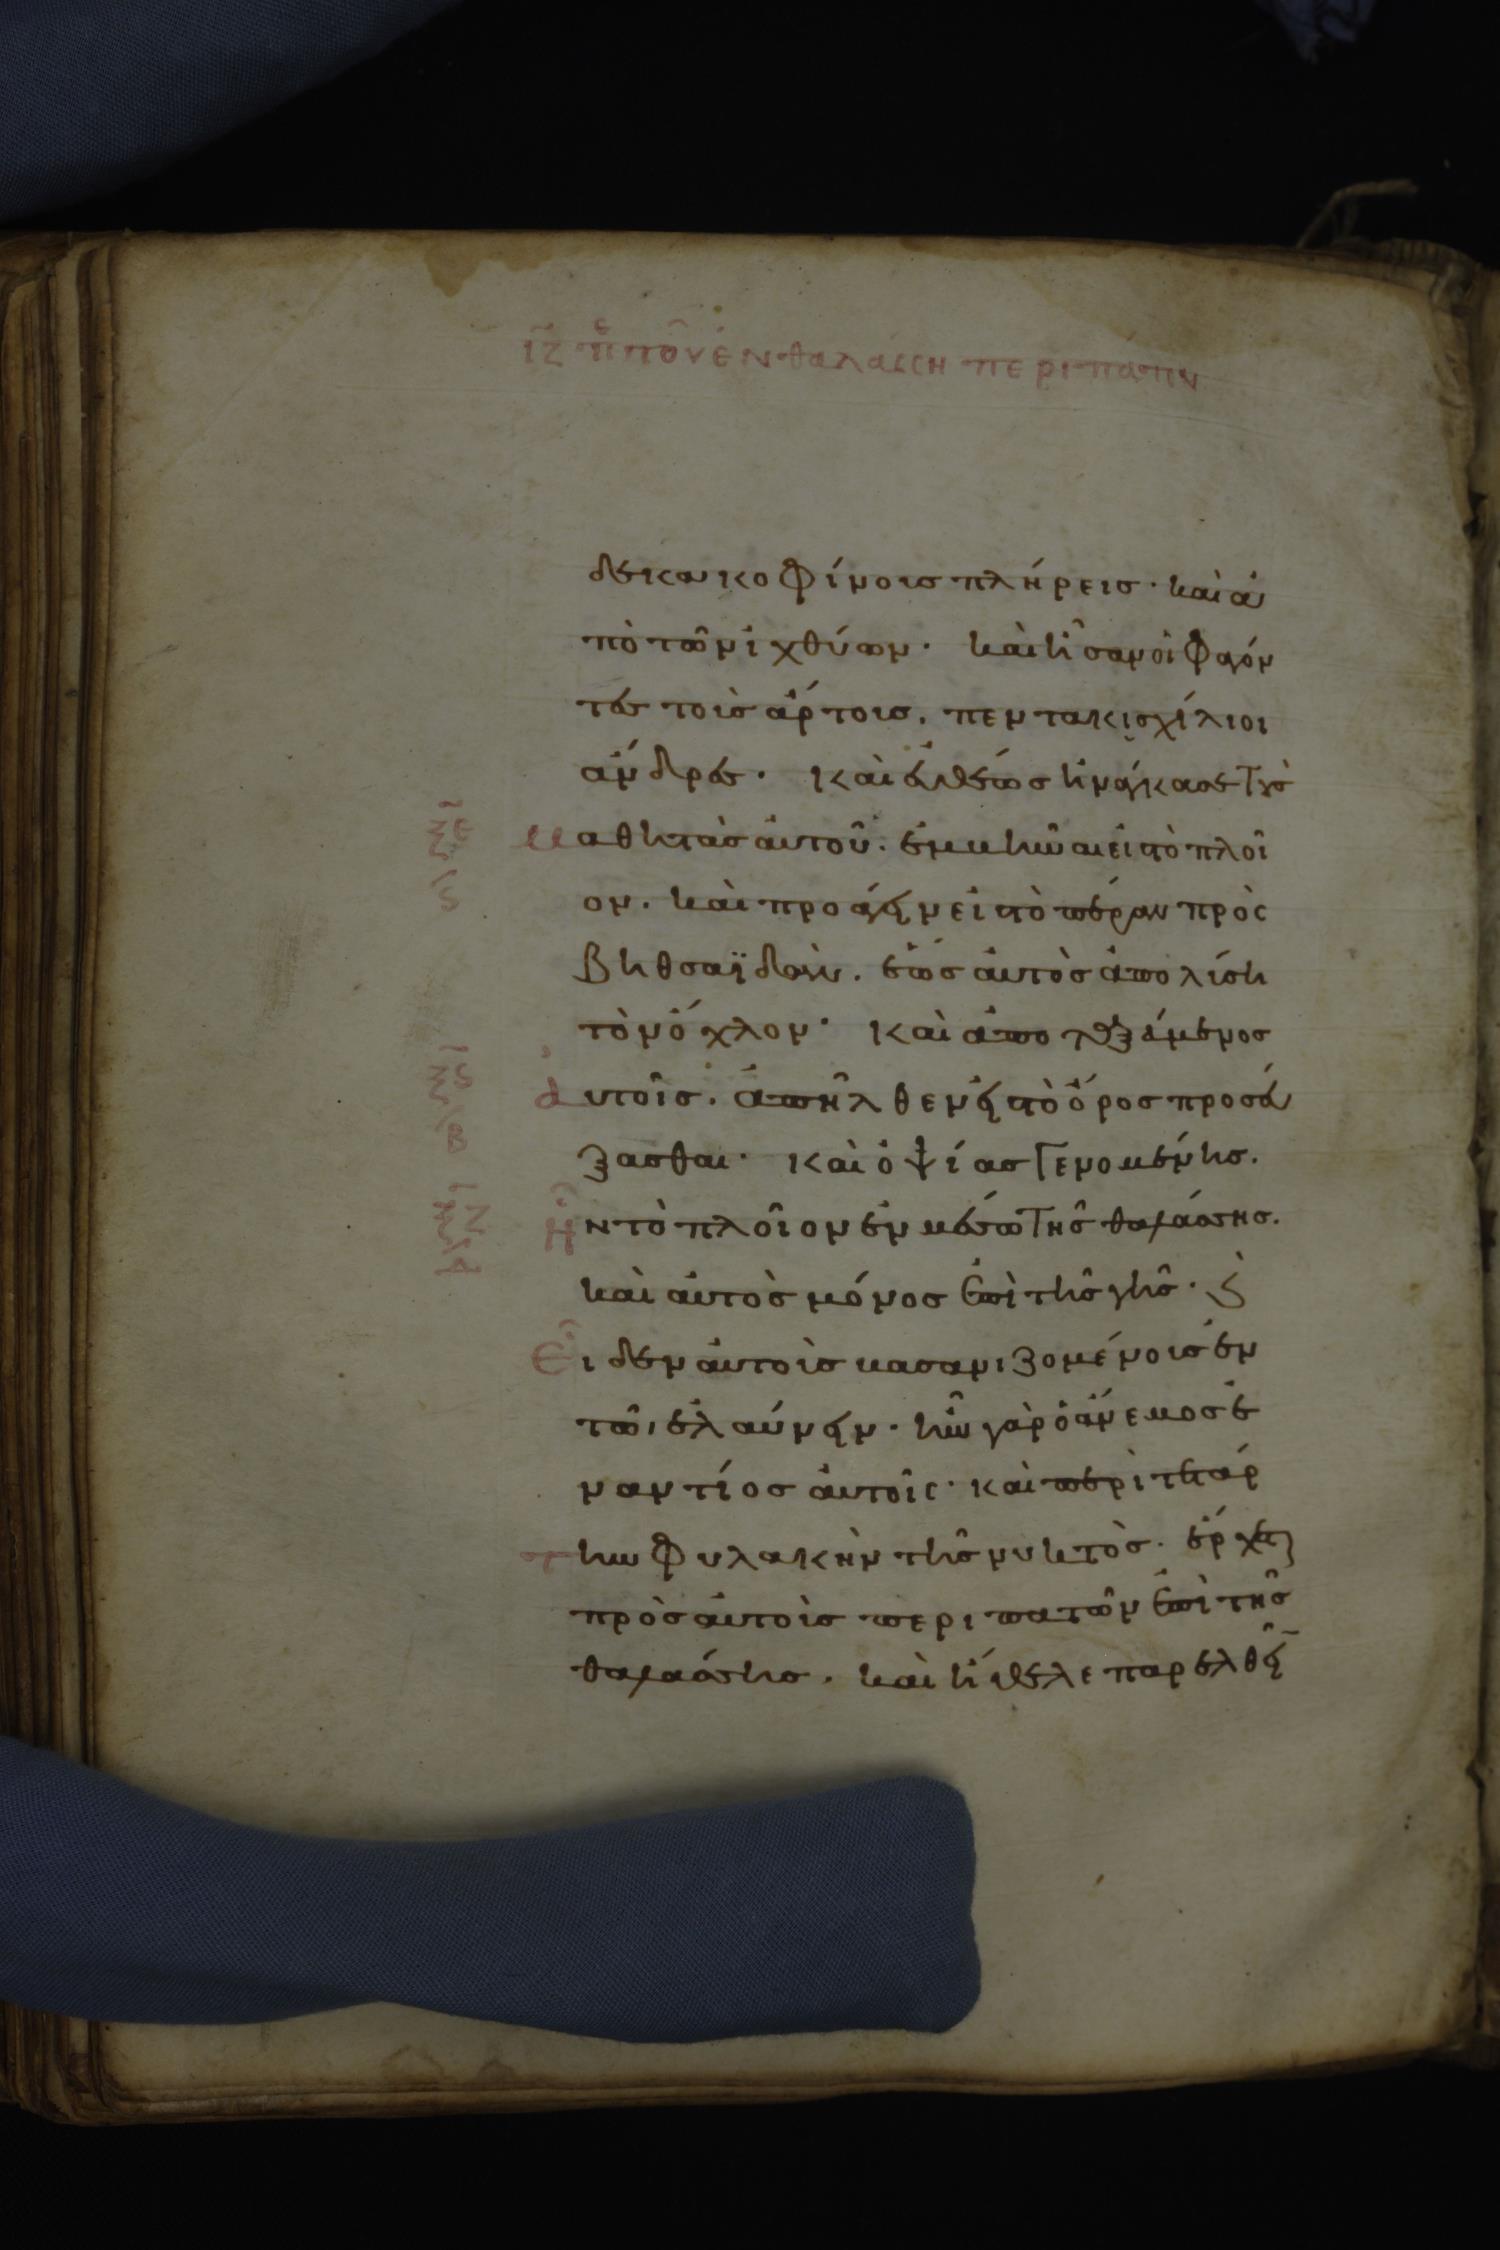 ιζ περι του εν θαλάσση περιπάτου
δεκα κοφίνοις πλήρεις· καὶ ἀ
πὸ τῶν ἰχθύων· καὶ ἦσαν οἱ φαγόν
τες τοὺς ἄρτους. πεντακισχίλιοι
ἄνδρες· καὶ εὐθέως ἠνάγκασε τοὺς
ξε μαθητὰς αὐτοῦ. ἐμβῆναι εἰς τὸ πλοῖ
ς ον. καὶ προάγειν εἰς τὸ πέραν πρὸς
βηθσαϊδάν. ἕως αὐτὸς ἀπολύση
τὸν ὄχλον· καὶ ἀποταξάμενος
ξς αὐτοῖς. ἀπῆλθεν εἰς τὸ ὄρος προσεύ
β ξασθαι· καὶ ὀψίας γενομένης.
ξζ ἦν τὸ πλοῖον ἐν μέσω τῆς θαλάσσης.
δ καὶ αὐτὸς μόνος ἐπὶ τῆς γῆς· καὶ
εἶδεν αὐτοὺς βασανιζομένους ἐν
τῶ ἐλαύνειν· ἦν γὰρ ὁ ἄνεμος ἐ
ναντίος αὐτοῖς· καὶ περὶ τετάρ
την φυλακὴν τῆς νυκτὸς. ἔρχεται
πρὸς αὐτοὺς περιπατῶν ἐπὶ τῆς
θαλάσσης. καὶ ἤθελε παρελθεῖν